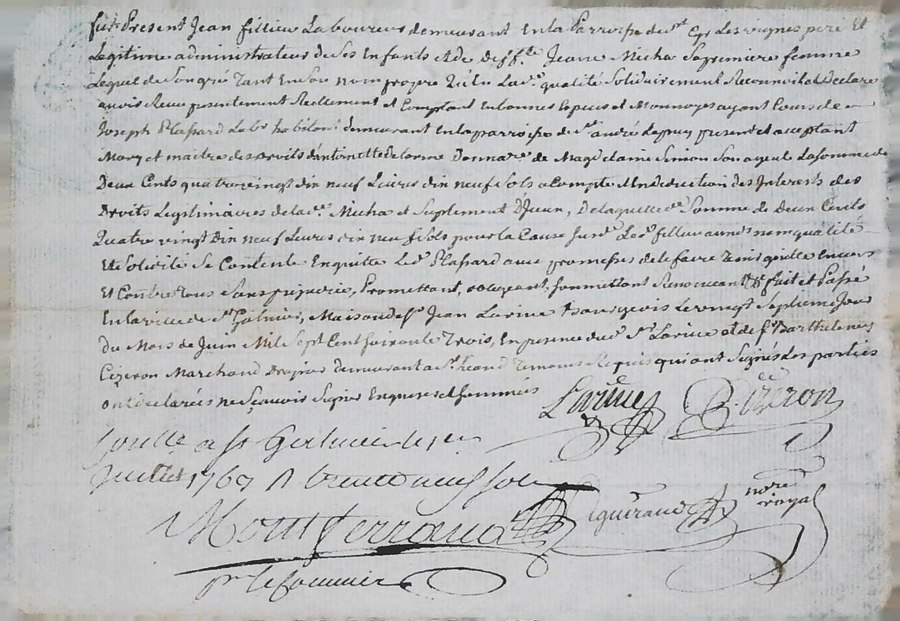 fut Present Jean fillieu Laboureur demeurant En la Parroisse de st Cyr Les vignes pere Et
Legitime administrateur de Ses Enfants Et de deffte Jeane Micha Sa premiere femme
Lequel de Son gré Tant En Son nom propre Qu'En La de qualité Solidairement Reconnoit et Declare
avoir Receu presentement Reellement et Comptant En bonnes Especes et Monnoyes ayant Cours de
Joseph Plassard habitant demeurant En la parroisse de st andré Le puy present et acceptant
Mary et maitre des Droits d'antoinette delorme Donnare de Magdelaine Simon Son ayeule La Somme de
Deux Cents quatre vingt dix neuf Livres dix neuf Sols a Compte et En deduction des Interests des
Droits Legitimaires de la de Micha et Suplement D'jceux, De laquelle de Somme de Deux Cents
Quatre vingt Dix neuf Livres dix neuf Sols pour la Cause Led fillieu aux nom qualité
Et Solidité Se Contente En quitte Led Plassard avec promesses de le faire Tenir quitte Envers
Et Contre Tous Sans prejudice, Promettant, obligeant, Soumettant Renonceant &c fait et Passé
En la ville de St Galmier, Maison de Sr Jean Larive Bourgeois Le vingt Septieme Jour
du Mois de Juin Mil Sept Cent soixante Trois, En presence dud Sr Larive et de Sr Barthelemy
Cizeron Marchand Drapier demeurant a St Temoins Requis qui ont Signés Les parties
ont declarées ne Sçavoir Signer Enquises et Sommées
Larive Cizeron
a st Galmier le
Juillet 1763 R trente neuf sols
Montferrand notre royal
pr le Commis